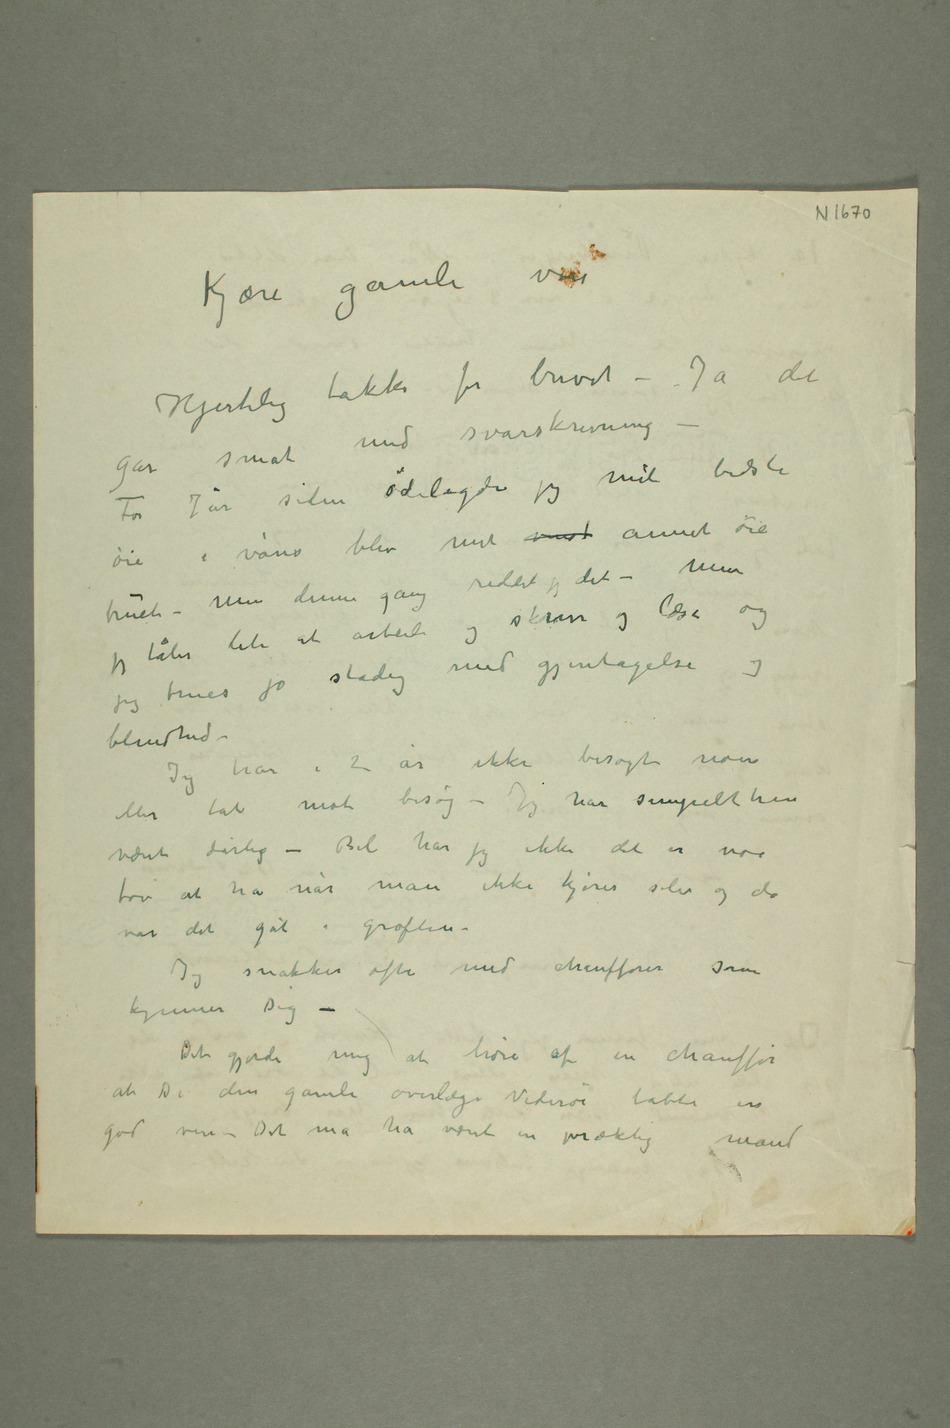 N 1670
Kjære gamle ven
Hjertelig takk for brevet – Ja det
går småt med svarskrivning –
For 7 år siden ödelagde jeg mit bedste
öie i våres blev mit venst annet öie
truet – Men denne gang reddet jeg det – Men
jeg tåler lite at arbeide og skrive og læse og
jeg trues jo stadig med gjentagelse og
blindhed –
Jeg har i 2 år ikke besøgt noen
eller tat mot besøg – Jeg har simpelthen
været dårlig – Bil har jeg ikke det er noe
töv at ha når man ikke kjører selv og da
var det gåt i grøften –
Jeg snakker ofte med chauffører som
kjenner Dig –
Det gjorde mig at høre af en chauffør
at De den gamle overlæge Vederöe tabte en
god ven – Det må ha været en prægtig mand